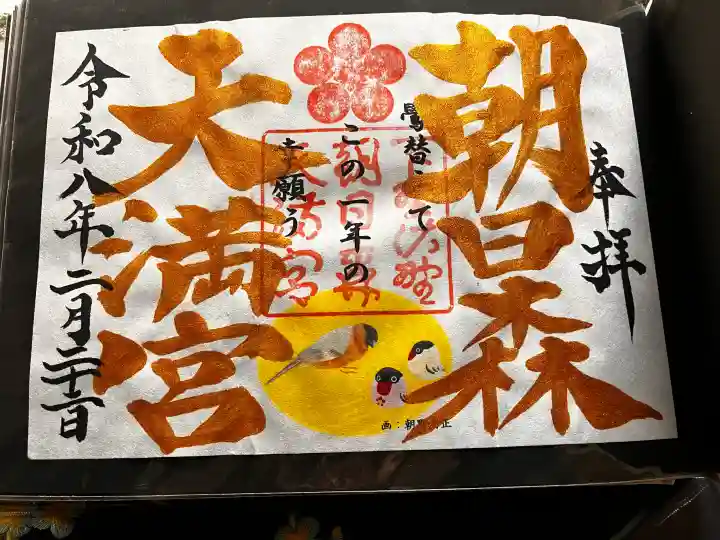 奉拝
朝日森
天満宮
鷽替えて
この一年の
幸願う
令和八年二月二十二日
画：朝
正